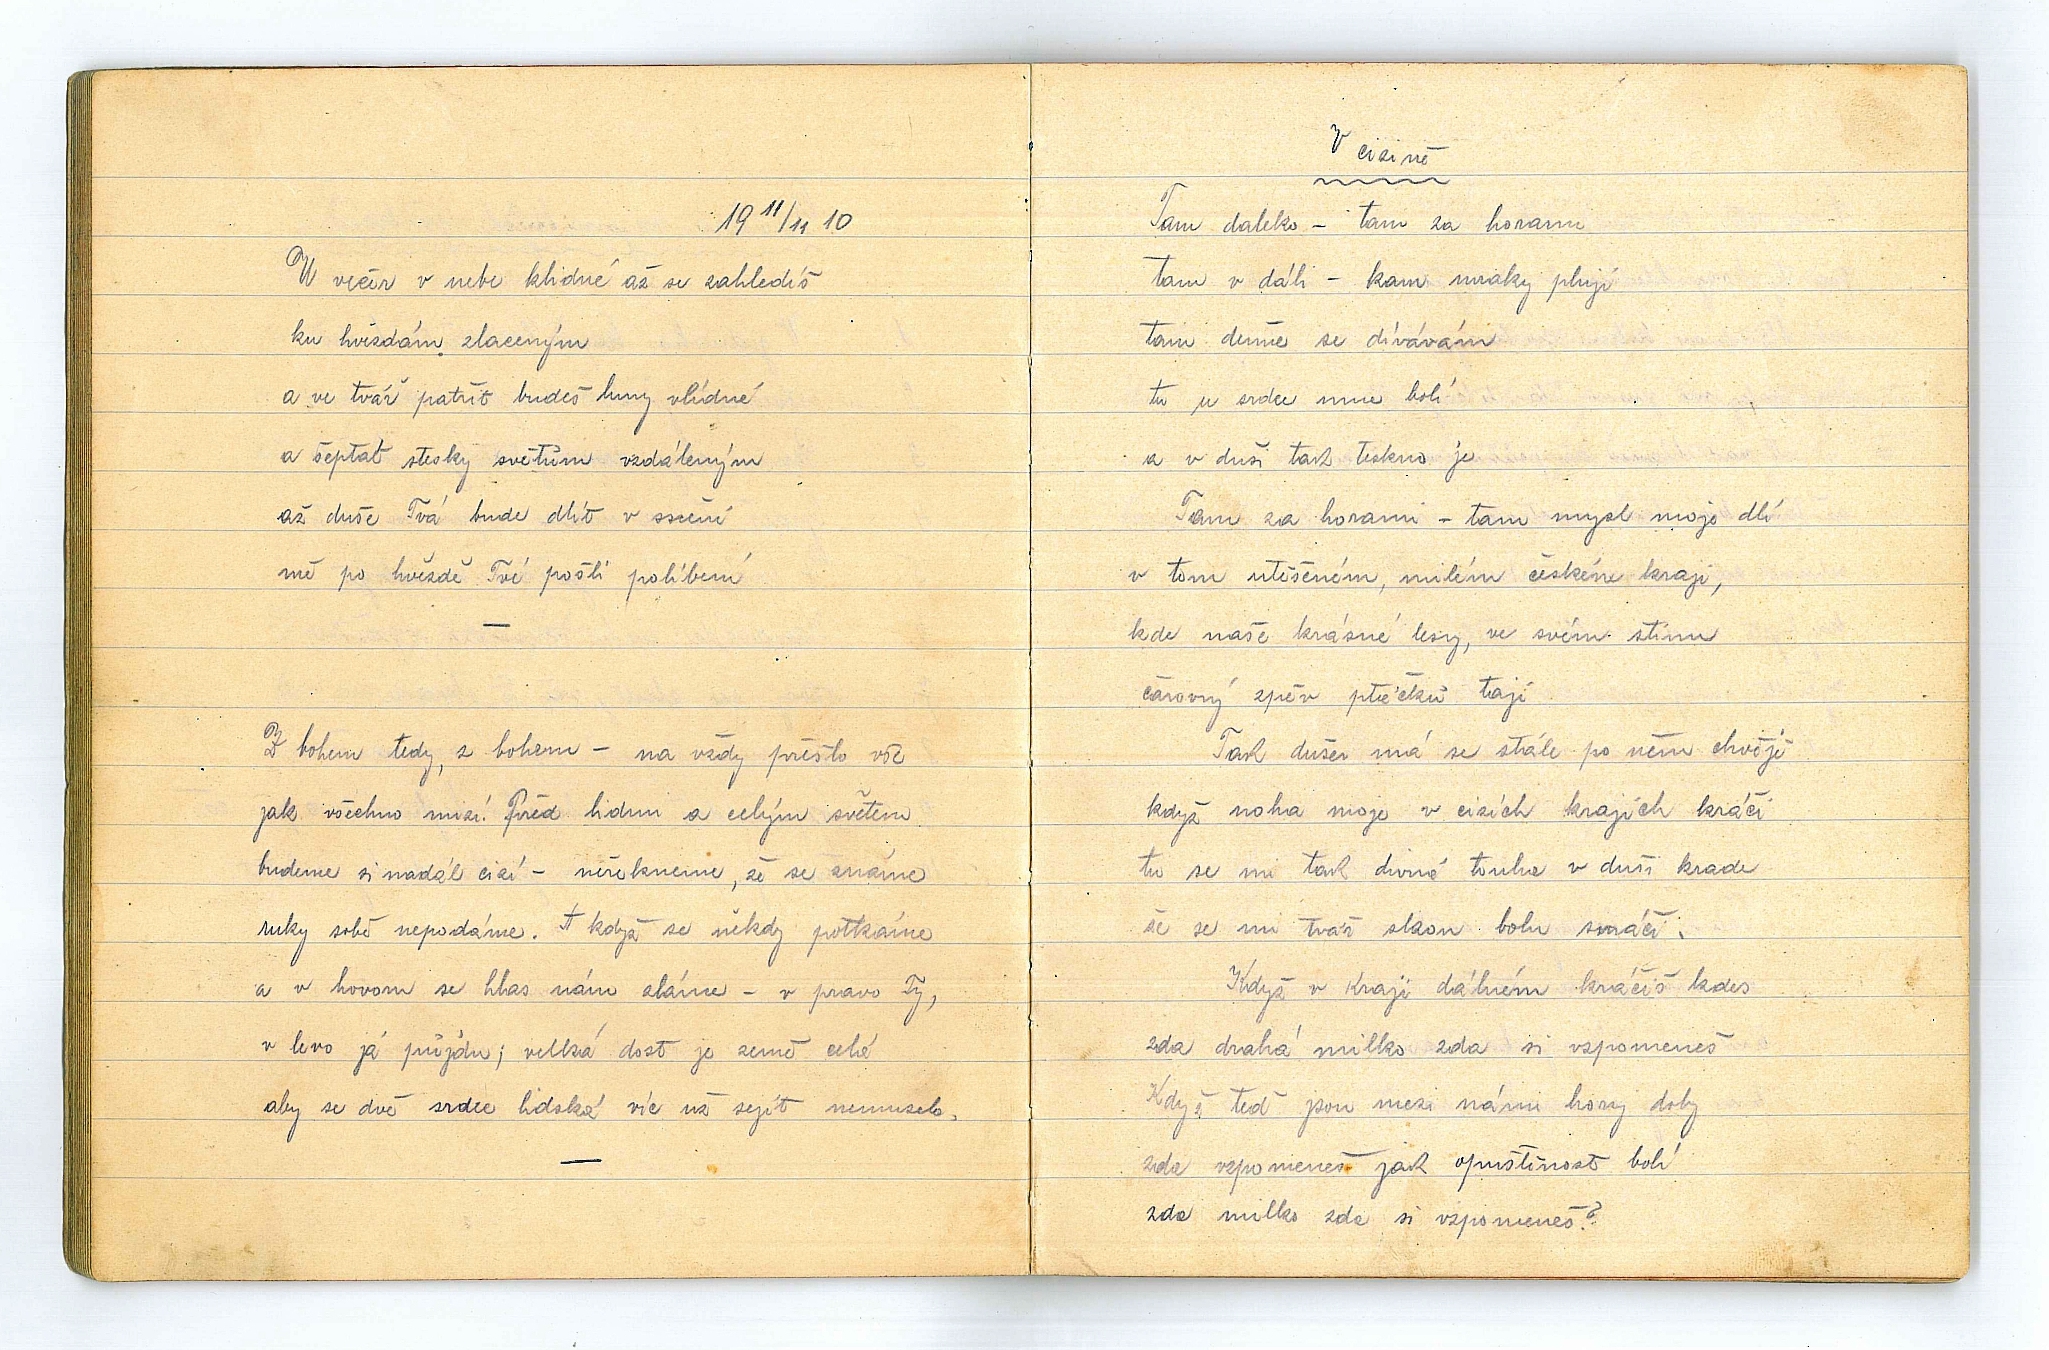 19 11/11 10
U večer v nebe klidné až se zahledíš
ku hvězdám zlaceným
a ve tvář patřit budeš luny vlídné
a šeptat stesky světům vzdáleným
až duše Tvá bude dlít v snění
mě po hvězdě Tvé pošli políbení
—
Z bohem tedy, z bohem – na vždy přešlo vše
jak všechno mizí! Před lidmi a celým světem
budeme si nadál cizí – neřekneme, že se známe
ruky sobě nepodáme. A když se někdy potkáme
a v hovoru se hlas nám zláme – v pravo Ty,
v levo já půjdu; velká dost je země celá
aby se dvě srdce lidská víc už sejít nemusela.
—
V cizině
Tam daleko – tam za horami
tam v dáli – kam mraky plují
tam denně se dívávám
tu u srdce mne bolí
a v duši tak teskno je
Tam za horami – tam mysl moje dlí
v tom utěšeném, milém českém kraji,
kde naše krásné lesy, ve svém stínu
čarovný zpěv ptáčků tají
Tak duše má se stále po něm chvěje
když noha moje v cizích krajích kráčí
tu se mi tak divná touha v duši krade
že se mi tvář slzou bolu smáčí.
Když v kraji dálném kráčíš kdes
zda drahá milko zda si vzpomeneš
Když teď jsou mezi námi hory doly
zda vzpomeneš jak opuštěnost bolí
zda milko zda si vzpomeneš?